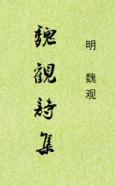 明 魏观
魏觀詩集